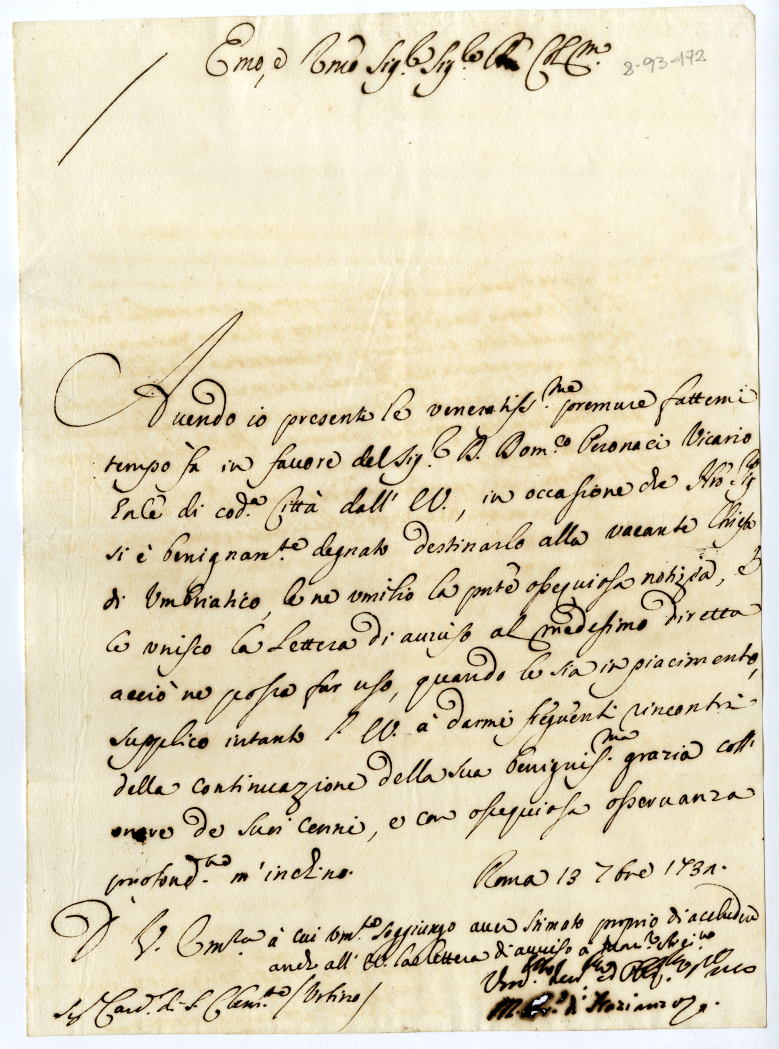 Emo, e Rmo Sig.re Sig.re Col.mo
8-93-172
Avendo io presenti le veneratiss.me premure fattemi
tempo fà in favore del Sig.r D. Dom.co Peronaci Vicario
Gnle di cod.a Città dall' EV., in occasione che Nro Sig.re
si è benignam.te degnato destinarlo alla vacante Chiesa
di Umbriatico, le ne umilio la pnte ossequiosa notizia, e
le unisco la Lettera di avviso al medesimo diretta
acciò ne possa far uso, quando le sia in piacimento,
supplico intanto l' EV. à darmi frequenti rincontri
della continuazione della sua benigniss.ma grazia coll'
onore de suoi cenni, e con ossequiosa osservanza
profond.te m'inchino. Roma 13 7bre 1731.
D V. Em.za à cui um.te soggiungo aver stimato proprio di accludere
anch all' EV. la lettera di avviso a
Um.mo
M. di Nazianzo
Sig.r Card. di S. Clem.te / Urbino /